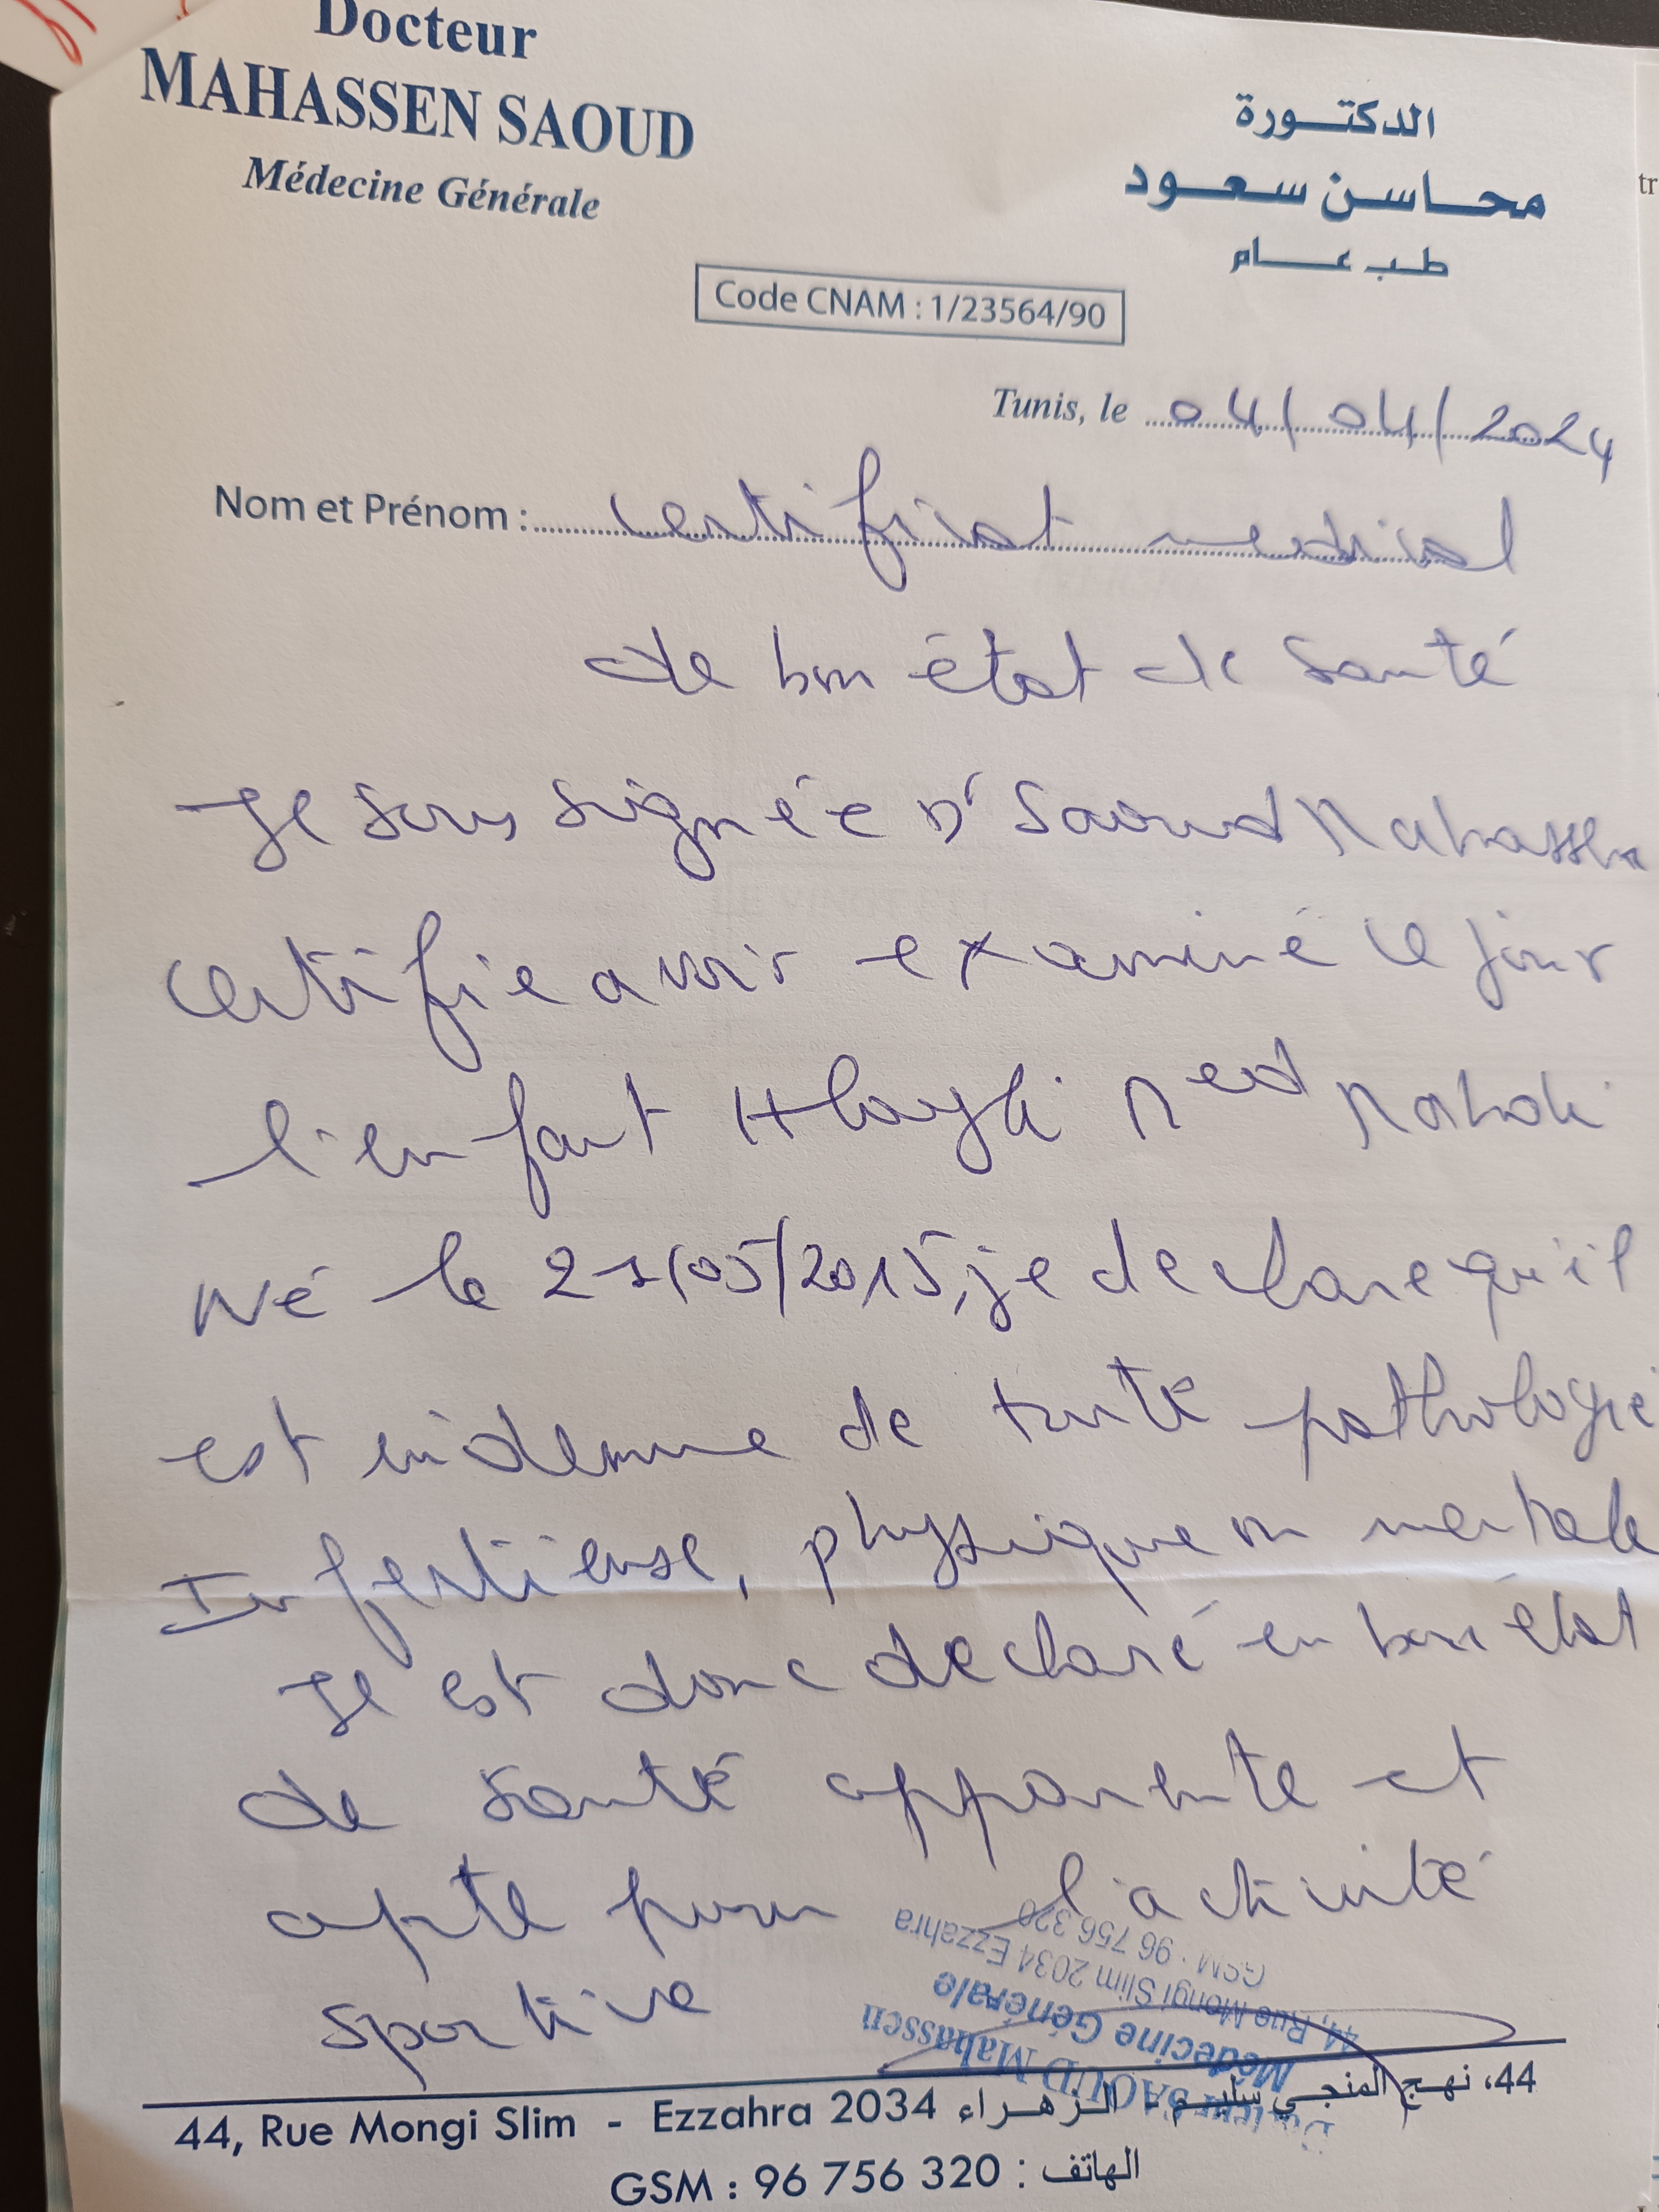 Docteur
MAHASSEN SAOUD
Médecine Générale
الدكتورة
محاسن سعود
طب عام
Code CNAM : 1/23564/90
Tunis, le 04/04/2024
Nom et Prénom : certificat medical
de bon état de santé
Je sous signée Dr Saoud Mahassen
certifie avoir examiné ce jour
l'enfant Hlayli Med Mahdi
Né le 21/05/2015, je declare qu'il
est indemne de toute pathologie
Infectieuse, physique ou mentale
Il est donc declaré en bon état
de santé apparente et
apte pour l'activité
sportive
Docteur SAOUD Mahassen
Médecine Générale
44, Rue Mongi Slim 2034 Ezzahra
GSM : 96 756 320
44, Rue Mongi Slim - Ezzahra 2034 44، نهج المنجي سليم - الزهراء
GSM : 96 756 320 : الهاتف
tr